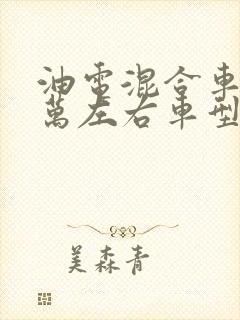 油電混合車
萬左右車型
美森青